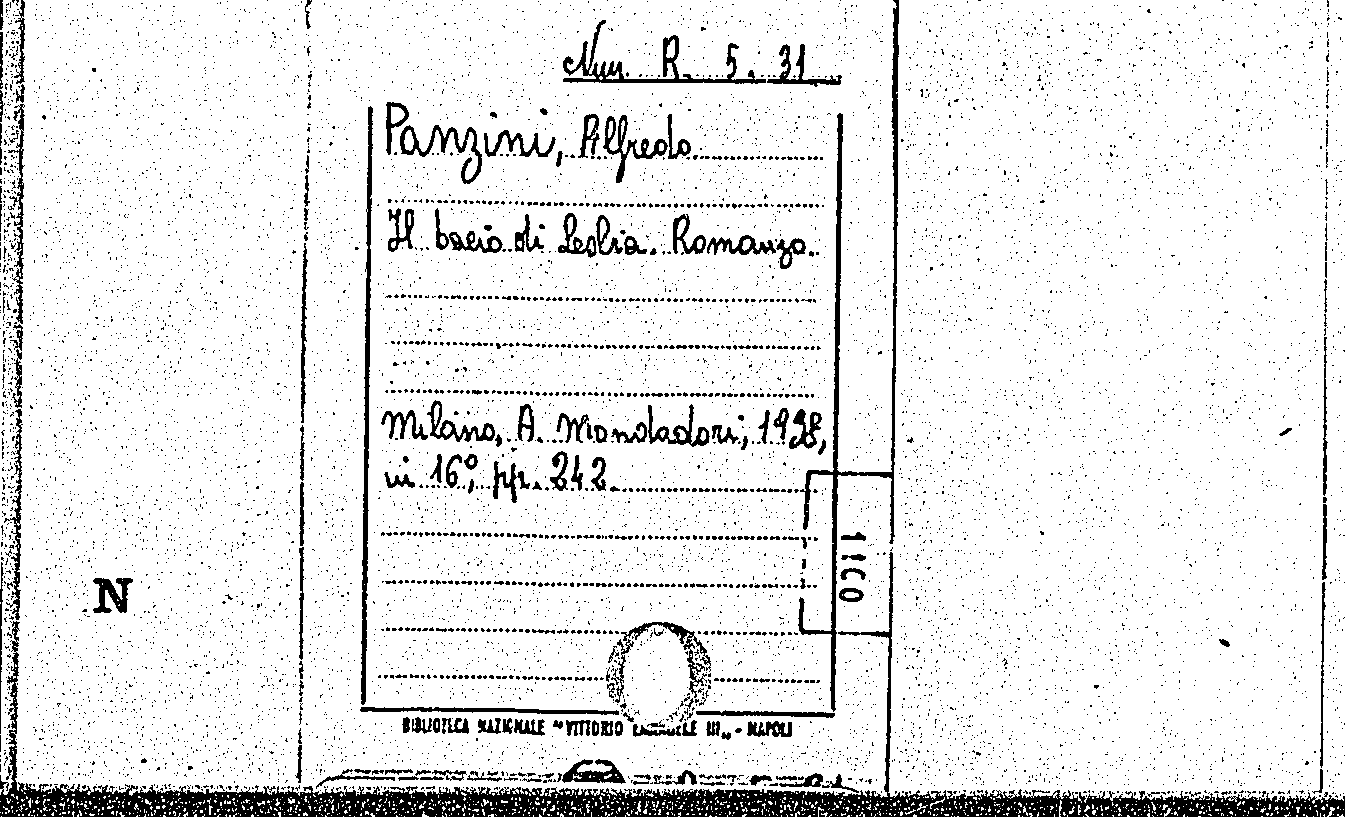 Nun. R. 5. 31
Panzini, Alfredo
Il bacio di Lesbia. Romanzo.
Milano, A. Mondadori, 1938,
in 16°, pp. 242.
N
BIBLIOTECA NAZIONALE "VITTORIO EMANUELE III„ - NAPOLI